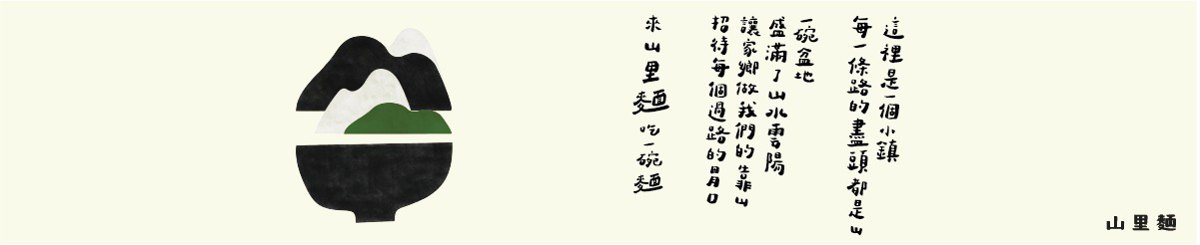 這裡是一個小鎮
每一條路的盡頭都是山
一碗盆地
盛滿了山水雲陽
讓家鄉做我們的靠山
招待每個過路的胃口
來山里麵吃一碗麵
山里麵